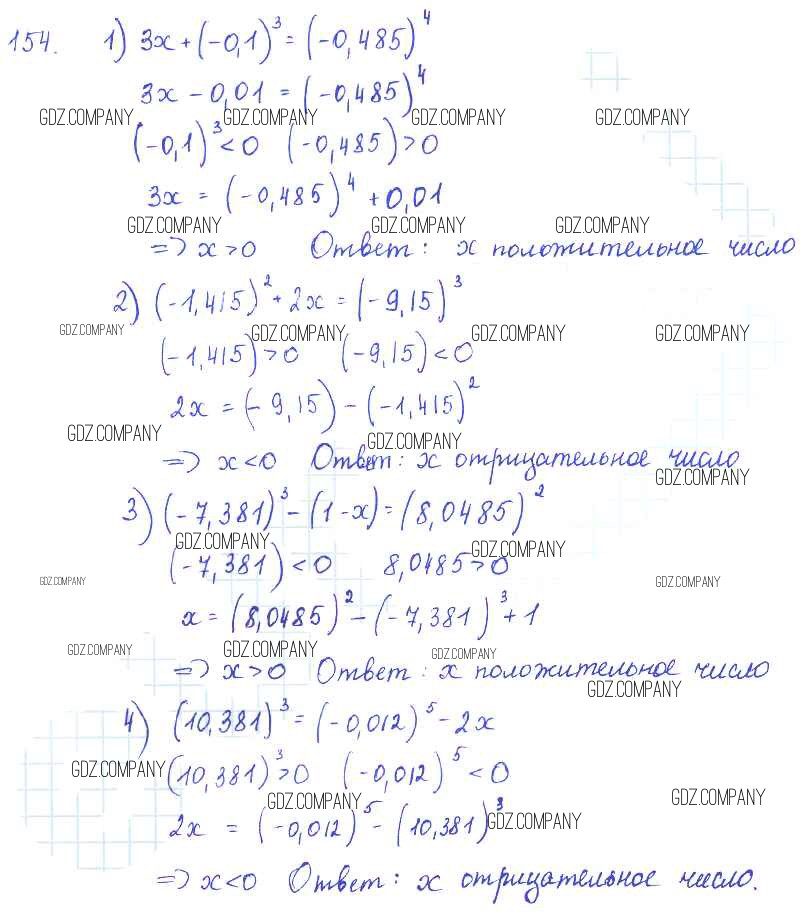 154. 1) 3x + (-0,1)³ = (-0,485)⁴
3x - 0,01 = (-0,485)⁴
GDZ.COMPANY GDZ.COMPANY GDZ.COMPANY GDZ.COMPANY
(-0,1)³ < 0 (-0,485) > 0
3x = (-0,485)⁴ + 0,01
GDZ.COMPANY GDZ.COMPANY GDZ.COMPANY
=> x > 0 Ответ: x положительное число
2) (-1,415)² + 2x = (-9,15)³
GDZ.COMPANY GDZ.COMPANY GDZ.COMPANY GDZ.COMPANY
(-1,415) > 0 (-9,15) < 0
2x = (-9,15) - (-1,415)²
GDZ.COMPANY GDZ.COMPANY
=> x < 0 Ответ: x отрицательное число
GDZ.COMPANY
3) (-7,381)³ - (1-x) = (8,0485)²
GDZ.COMPANY GDZ.COMPANY
(-7,381) < 0 8,0485 > 0
GDZ.COMPANY GDZ.COMPANY
x = (8,0485)² - (-7,381)³ + 1
GDZ.COMPANY GDZ.COMPANY GDZ.COMPANY
=> x > 0 Ответ: x положительное число
GDZ.COMPANY
4) (10,381)³ = (-0,012)⁵ - 2x
GDZ.COMPANY (10,381)³ > 0 (-0,012)⁵ < 0
GDZ.COMPANY GDZ.COMPANY
2x = (-0,012)⁵ - (10,381)³ GDZ.COMPANY
=> x < 0 Ответ: x отрицательное число.